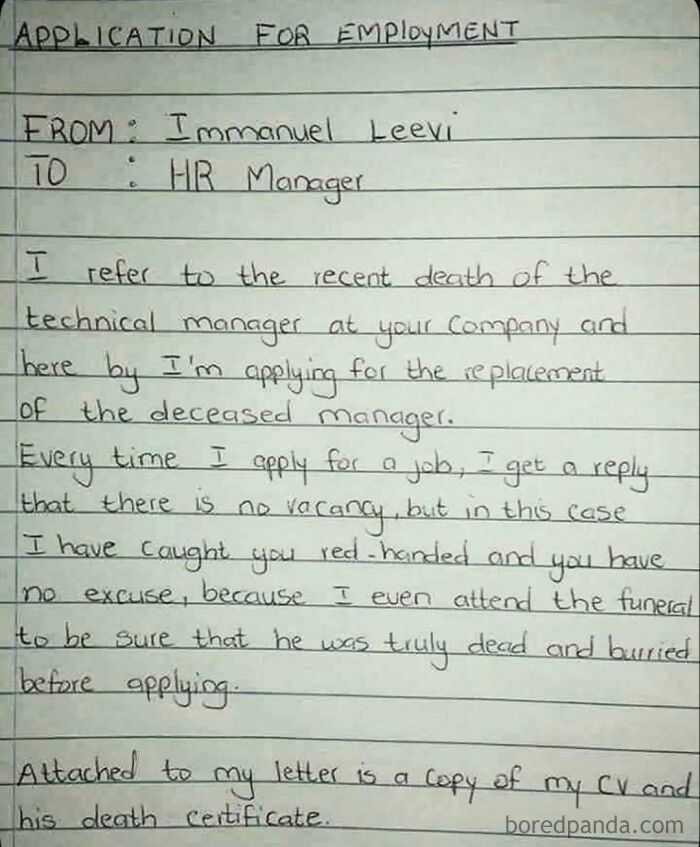 APPLICATION FOR EMPLOYMENT
FROM: Immanuel Leevi
TO : HR Manager
I refer to the recent death of the
technical manager at your Company and
here by I'm applying for the replacement
of the deceased manager.
Every time I apply for a job, I get a reply
that there is no vacancy, but in this case
I have caught you red-handed and you have
no excuse, because I even attend the funeral
to be sure that he was truly dead and burried
before applying.
Attached to my letter is a copy of my CV and
his death certificate.
boredpanda.com